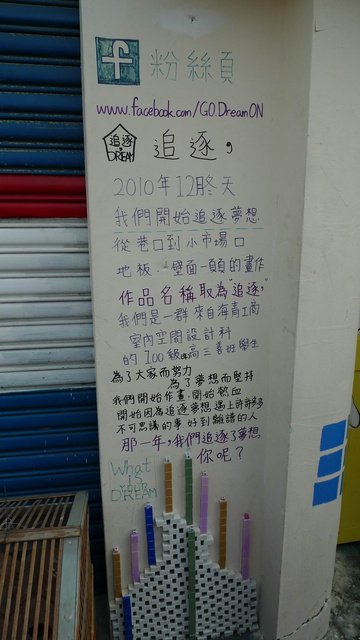 f 粉絲頁
www.facebook.com/GO.DreamON
追逐 DREAM 追逐,
2010年12月冬天
我們開始追逐夢想
從巷口到小市場口
地板.壁面一頁頁的畫作
作品名稱取為"追逐"
我們是一群來自海青工商
室內空間設計科
的100級高三善班學生
為了大家而努力
為了夢想而堅持
我們開始作畫.開始飲血
開始因為追逐夢想遇上許許多多
不可思議的事好到離譜的人
那一年,我們追逐了夢想
你呢?
What
is
YOUR
DREAM